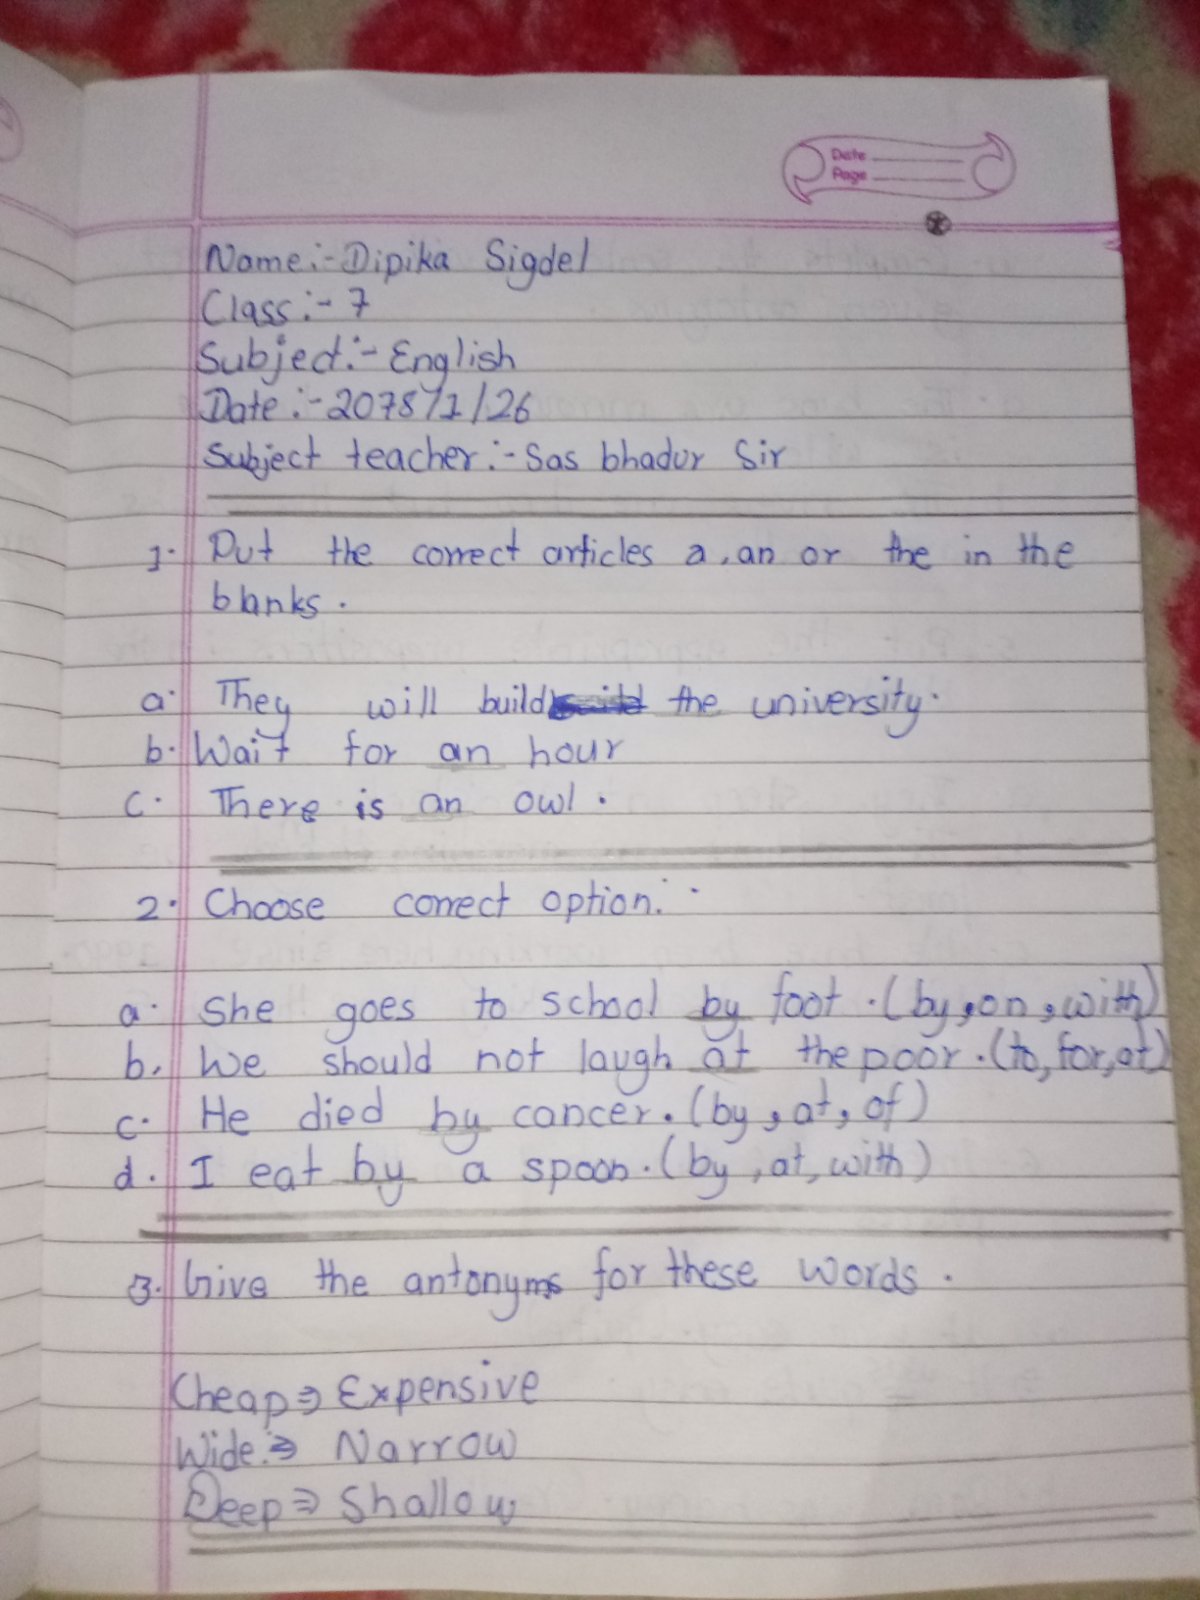 Date
Page
Name:- Dipika Sigdel
Class:- 7
Subject:- English
Date:- 2078/1/26
Subject teacher:- Sas bhadur Sir
1. Put the correct articles a, an or the in the
blanks.
a. They will build the university.
b. Wait for an hour
c. There is an owl.
2. Choose correct option.
a. She goes to school by foot. (by, on, with)
b. We should not laugh at the poor. (to, for, at)
c. He died by cancer. (by, at, of)
d. I eat by a spoon. (by, at, with)
3. Give the antonyms for these words.
Cheap ⇒ Expensive
Wide ⇒ Narrow
Deep ⇒ Shallow